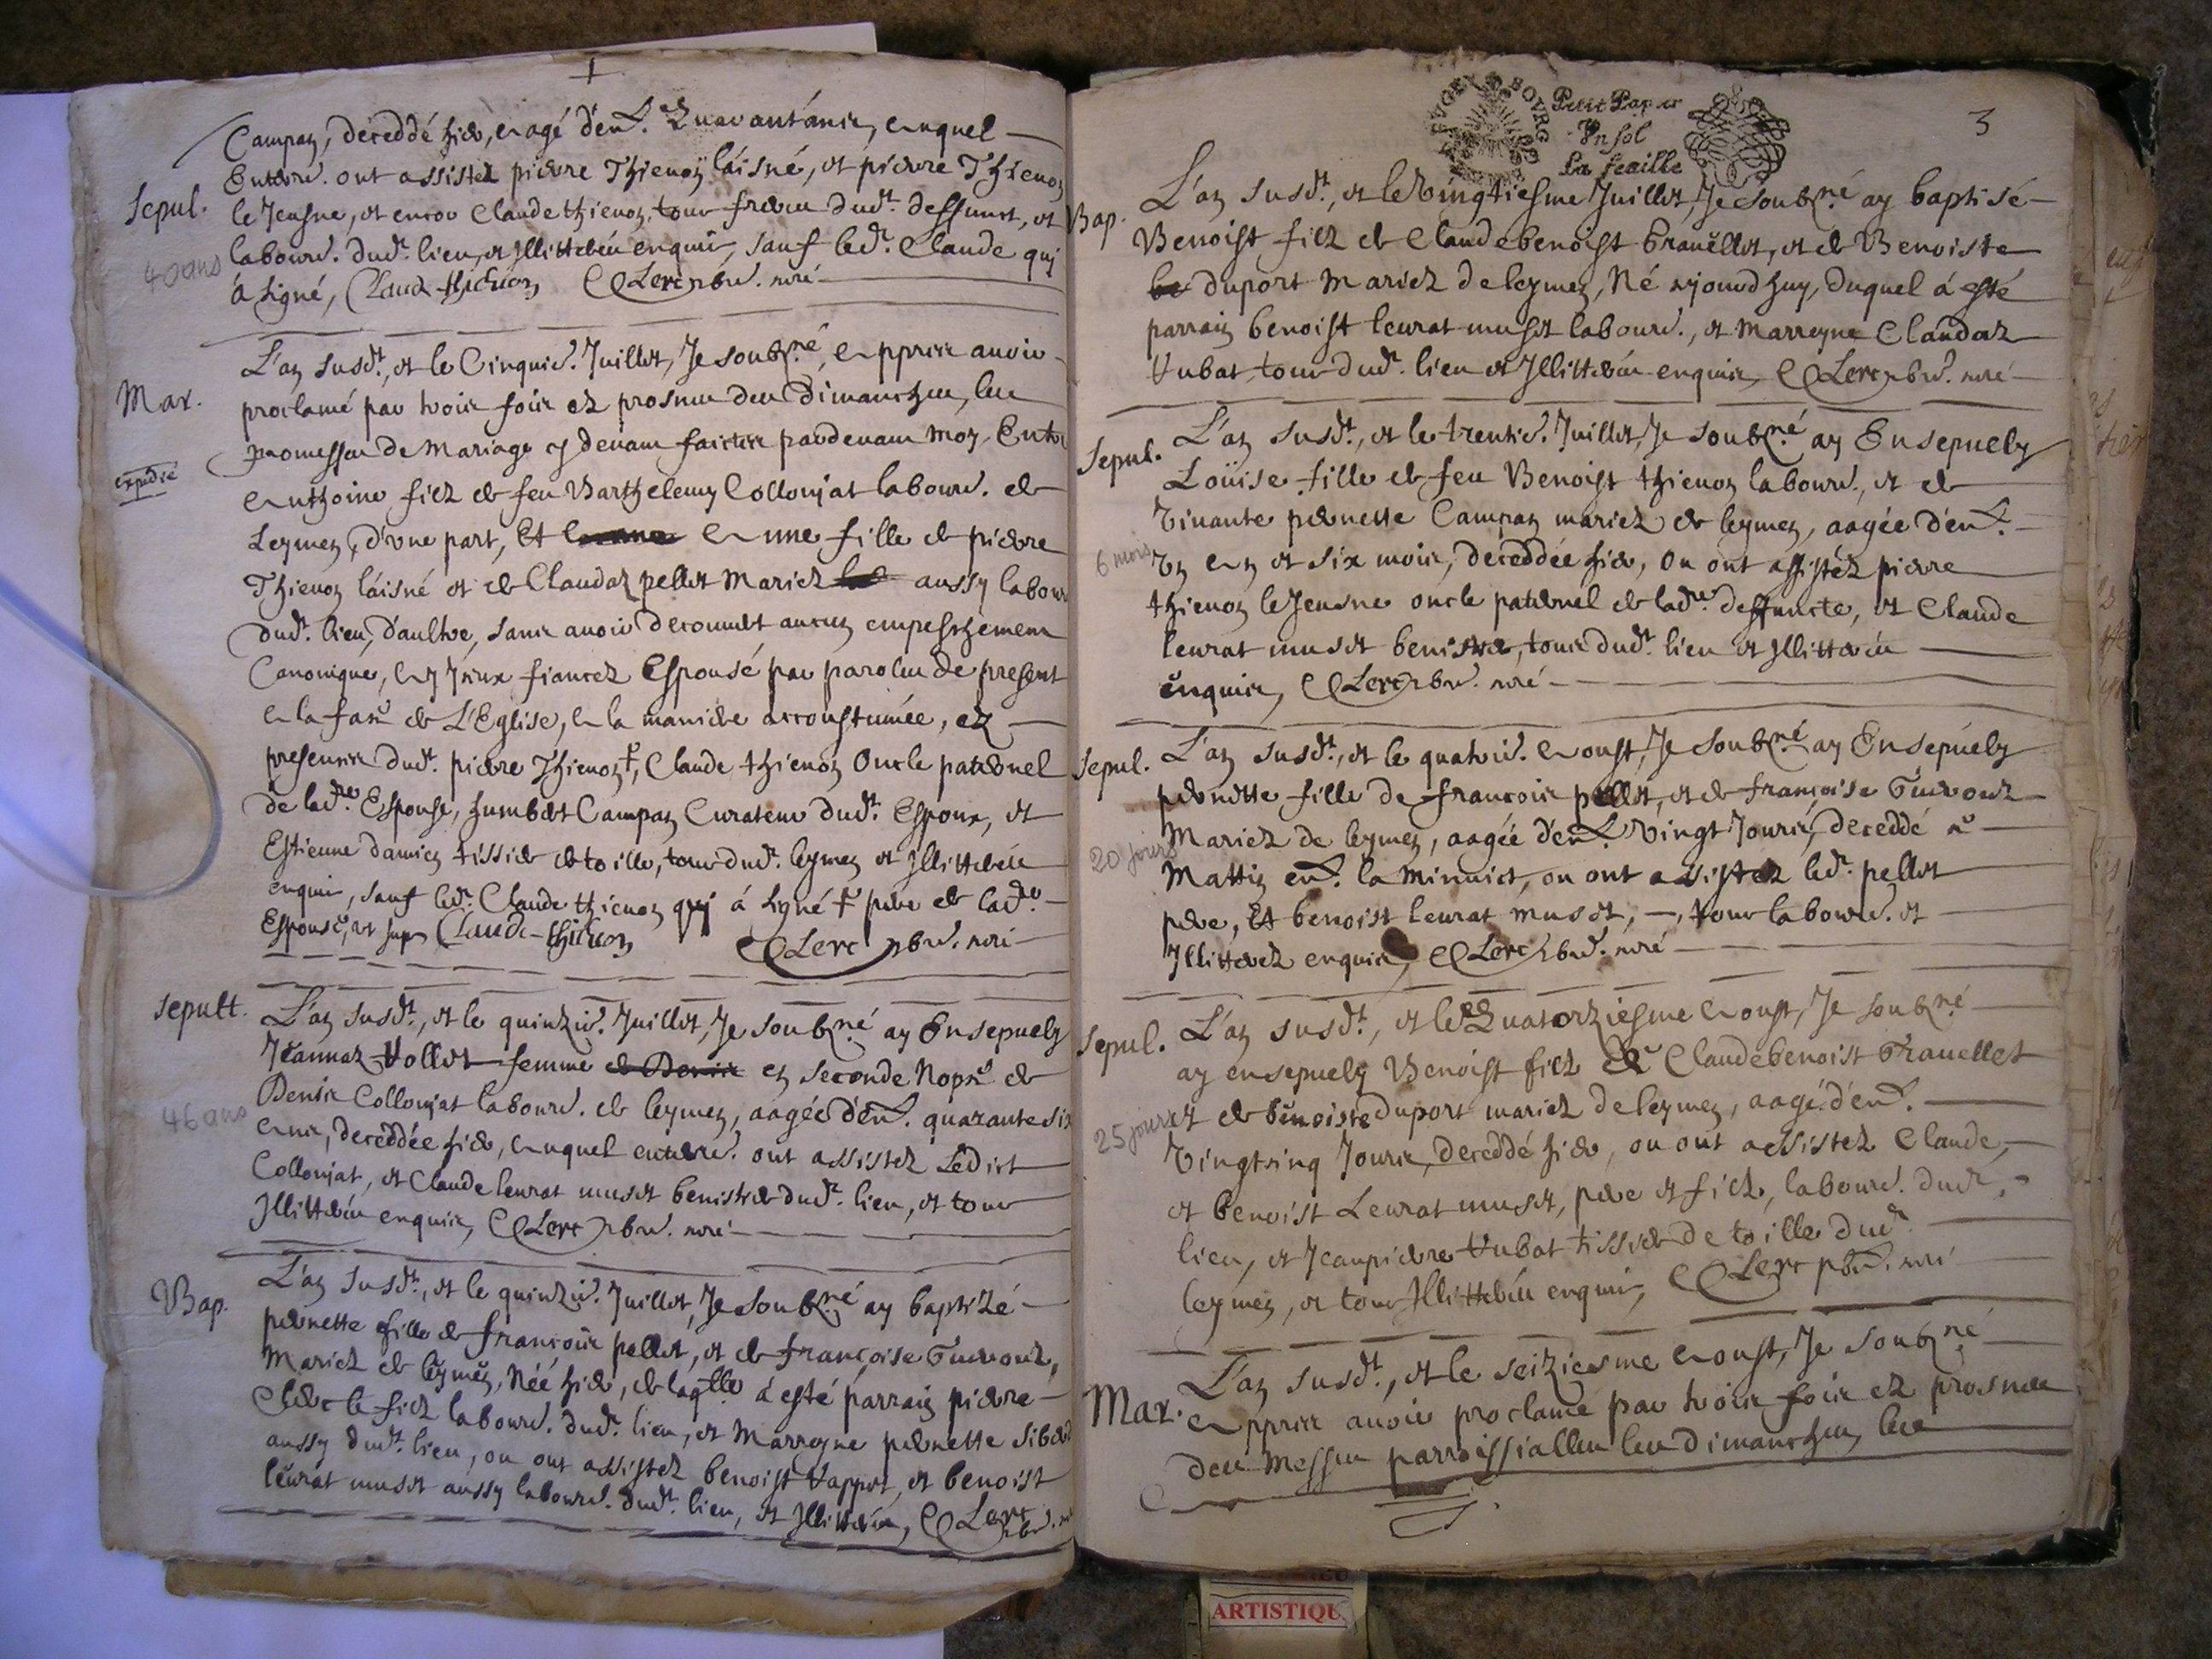 Campan, deceddé hier, aagé d'env. Quarant'anns, auquel
Enterr. ont assistez pierre Thienon láisné, et pierre Thienon
Sepul.
le Jeusne, et encor Claude thienon, tous freres dud.t deffunct, et
40 ans
labour. dud.t lieu, et Illitterés enquis, sauf led.t Claude quj
à signé, Claude thienon CLerc pbr. curé
Mar.
L'an susd.t, et le Cinquie. Juillet, Je soubz.né, Apprès avoir
proclamé par trois fois ez prosnes des Dimanches, les
promesses de Mariage cy devant faictes pardevant moy Entre
expedié
Anthoine filz de feu Barthelemy Collonjat labour. de
Leymen, d'vne part, Et Anne fille de pierre
Thienon láisné et de Claudaz pellet Mariez aussy labour
dud.t lieu, d'aultre, sans avoir decouvert aucun empeschement
Canonique, les Ay Jceux fiancez Espousé par paroles de present
A la face de L'Eglise, A la maniere accoustumée, ez
presences dud.t pierre Thienon †, Claude thienon Oncle paternel
de lad.te Espouse, humbert Campan Curateur dud.t Espoux, et
Estienne damien tissier de toille, tous dud.t leymen et Illitterés
enquis, sauf led.t Claude thienon quj á signé † pere de lad.te
Espouse, et Claude thienon CLerc pbr. curé
sepult.
L'an susd.t, et le quinzie. Juillet, Je soubz.né ay Ensepuely
Jeannaz Vollet femme de Denis en seconde Nopse de
Denis Collonjat labour. de leymen, aagée d'env. quarante six
46 ans
Ans, deceddée hier, Auquel enterr. ont assistez Ledict
Collonjat, et Claude leurat muset benistier dud.t lieu, et tous
Illitterés enquis, CLerc pbr. curé
Bap.
L'an susd.t, et le quinzie. Juillet, Je soubz.né ay baptizé
pernette fille de françois pellet, et de françoise
Mariez de leymen, Née hier, de laq.lle á esté parrain pierre
Clerc le filz labour. dud.t lieu, et Marreyne pernette
aussy dud.t lieu, ou ont assistez benoist Vappet, et benoist
leurat muset aussy labour. dud.t lieu, et Illitterés, CLerc pbr.
BUGEY BOURG
Petit Papier
Un sol
La feuille
3
Bap.
L'an susd.t, et le vingtiesme Juillet, Je soubz.né ay baptisé
Benoist filz de Claudebenoist travellet, et de Benoiste
duport Mariez de leymen, Né ajourdhuy, duquel á esté
parrain benoist leurat muset labour., et Marreyne Claudaz
Vubat, tous dud.t lieu et Illitterés enquis, CLerc pbr. curé
Sepul.
L'an susd.t, et le trentie. Juillet, Je soubz.né ay Ensepuely
Loüise fille de feu Benoist thienon labour., et de
vivante pernette Campan mariez de leymen, aagée d'env.
6 mois
vn An et six mois, deceddée hier, Ou ont assistéz pierre
thienon le Jeusne oncle paternel de lad.te deffuncte, et Claude
leurat muset benistier, tous dud.t lieu et Illitterés
enquis, CLerc pbr. curé
Sepul.
L'an susd.t, et le quatrie. Aoust, Je soubz.né ay Ensepuely
pernette fille de françois pellet, et de françoise
Mariez de leymen, aagée d'env. vingt Jours, deceddé ce
20 jours
Mattin env. la Minuict, ou ont assistez led.t pellet
pere, Et benoist leurat muset, tous labour. et
Illitterez enquis, CLerc pbr. curé
Sepul.
L'an susd.t, et le Quatorziesme Aoust, Je soubz.né
ay ensepuely Benoist filz de Claudebenoist Travellet
25 jours
et de benoiste duport mariez de leymen, aagé d'env.
vingtcinq Jours, deceddé hier, ou ont assistez Claude,
et benoist Leurat muset, pere et filz, labour. dud.t
lieu, et Jeanpierre Vubat tissier de toille dud.t
leymen, et tous Illitterés enquis, CLerc pbr. curé
Mar.
L'an susd.t, et le seiziesme Aoust, Je soubz.né
Apprès avoir proclamé par trois fois ez prosnes
des Messes parroissialles les dimanches, les
ARTISTIQU